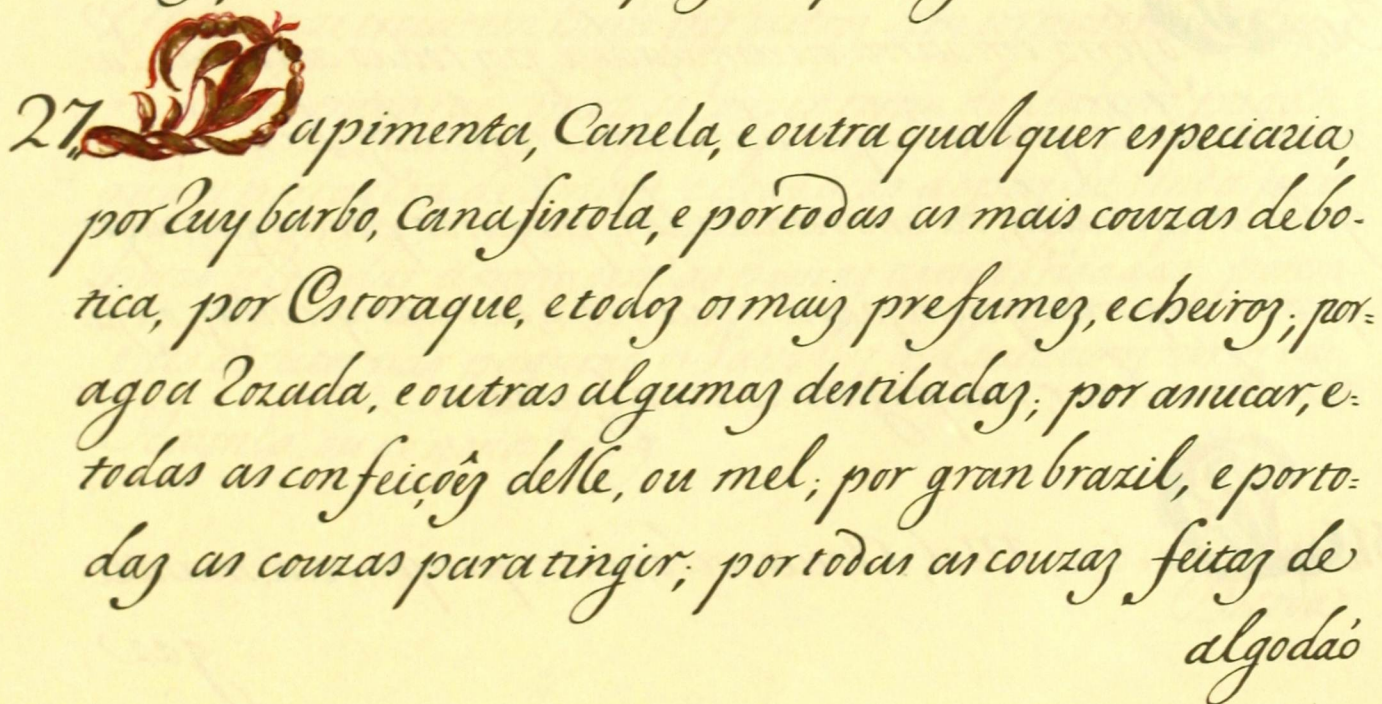 27,, Da pimenta, Canela, e outra qual quer especiaria,
por Ruy barbo, Canafistola, e por todas as mais couzas de bo-
tica, por Estoraque, e todoz os maiz prefumez, e cheiroz; por=
agoa Rozada, e outras algumaz destiladaz; por assucar, e=
todas as confeiçôẽz delle, ou mel; por gran brazil, e porto=
daz as couzas para tingir; por todas as couzaz feitaz de
algodaó